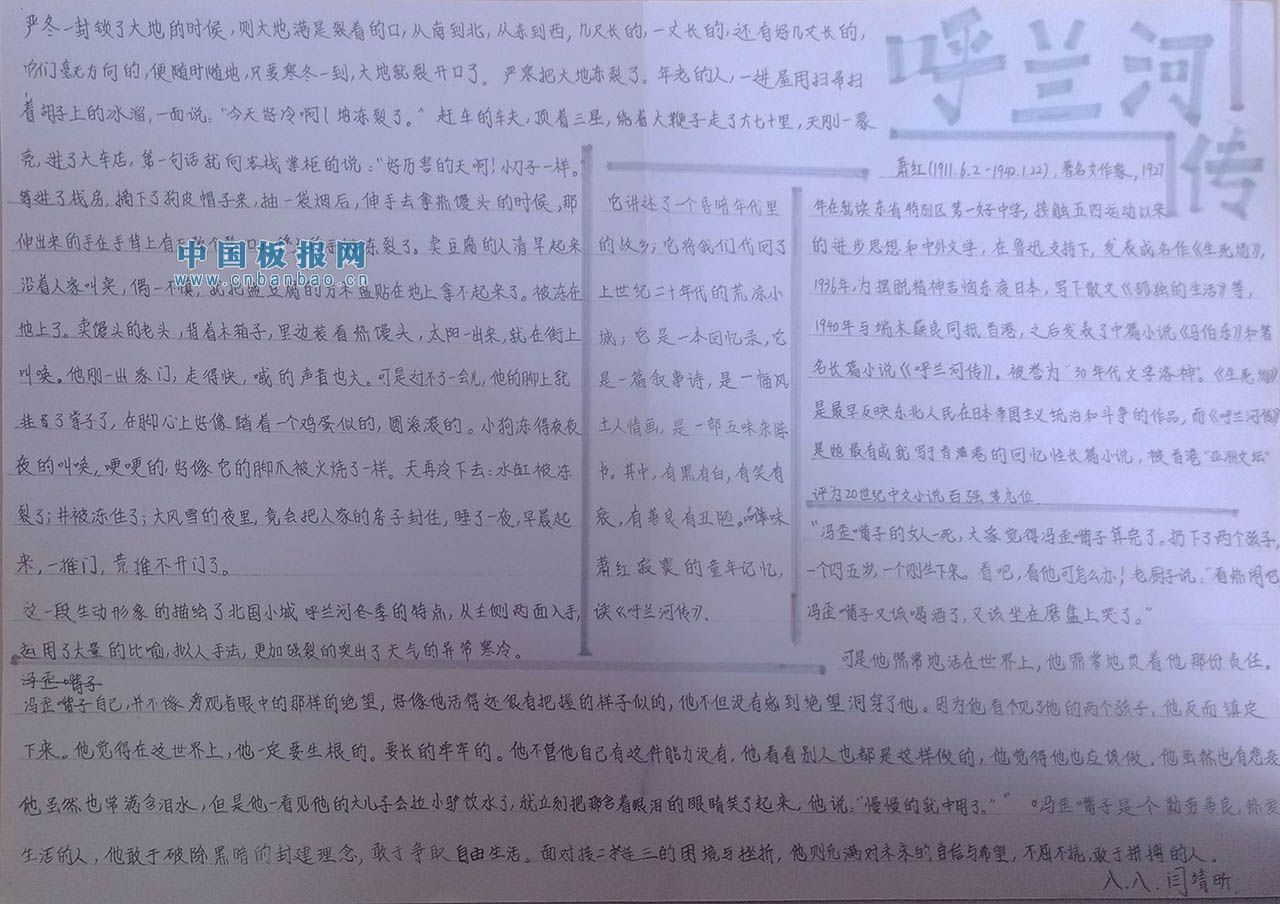 呼兰河
传
严冬一封锁了大地的时候,则大地满是裂着的口,从南到北,从东到西,几尺长的,一丈长的,还有好几丈长的,
它们毫无方向的,便随时随地,只要寒冬一到,大地就裂开口了。严寒把大地冻裂了。年老的人,一进屋用扫帚扫
着胡子上的冰溜,一面说:“今天好冷啊!地冻裂了。”赶车的车夫,顶着三星,绕着大鞭子走了六七十里,天刚一蒙
亮,进了大车店,第一句话就向客栈掌柜的说:“好厉害的天啊!小刀子一样。
等进了栈房,摘下了狗皮帽子来,抽一袋烟后,伸手去拿热馒头的时候,那
伸出来的手在手背上有 冻裂了。卖豆腐的人清早起来
沿着人家叫卖,偶一不慎,就把盛豆腐的方木盘贴在地上拿不起来了。被冻在
地上了。卖馒头的老头,背着木箱子,里边装着热馒头,太阳一出来,就在街上
叫唤。他刚一出家门,走得快,喊的声音也大。可是过不了一会儿,他的脚上就
挂了掌子了,在脚心上好像踏着一个鸡蛋似的,圆滚滚的。小狗冻得夜夜
夜的叫唤,哽哽的,好像它的脚爪被火烧了一样。天再冷下去:水缸被冻
裂了;井被冻住了;大风雪的夜里,竟会把人家的房子封住,睡了一夜,早晨起
来,一推门,竟推不开门了。
这一段生动形象的描绘了北国小城呼兰河冬季的特点,从主侧两面入手,
运用了大量的比喻,拟人手法,更加强裂的突出了天气的异常寒冷。
它讲述了一个昏暗年代里
的故乡;它将我们代回了
上世纪二十年代的荒凉小
城;它是一本回忆录,它
是一篇叙事诗,是一幅风
土人情画,是一部五味杂陈
书。其中,有黑有白,有笑有
哀,有善良有丑陋。品味
萧红寂寞的童年记忆,
读《呼兰河传》.
萧红(1911.6.2-1942.1.22),著名女作家,1927
年在就读东省特别区第一女子中学,接触五四运动以来
的进步思想和中外文学,在鲁迅支持下,发表成名作《生死场》,
1936年,为摆脱精神苦恼东渡日本,写下散文《孤独的生活》等,
1940年与端木蕻良同抵香港,之后发表了中篇小说《马伯乐》和著
名长篇小说《呼兰河传》。被誉为“30年代文学洛神”。《生死场》
是最早反映东北人民在日本帝国主义统治和斗争的作品,而《呼兰河传》
是她最有成就写于香港的回忆性长篇小说,被香港“亚洲文坛”
评为20世纪中文小说百强第九位
“冯歪嘴子的女人一死,大家觉得冯歪嘴子算完了。扔下了两个孩子,
一个四五岁,一个刚生下来。看吧,看他可怎么办!老厨子说:“看热闹吧
冯歪嘴子又该喝酒了,又该坐在磨盘上哭了。”
可是他照常地活在世界上,他照常地负着他那份责任。
冯歪嘴子
冯歪嘴子自己,并不像旁观者眼中的那样的绝望,好像他活得还很有把握的样子似的,他不但没有感到绝望洞穿了他。因为他看见了他的两个孩子,他反而镇定
下来。他觉得在这世界上,他一定要生根的。要长的牢牢的。他不管他自己有这件能力没有,他看看别人也都是这样做的,他觉得他也应该做。他虽然也有悲哀
他虽然也常满含泪水,但是他一看见他的大儿子会拉小驴饮水了,就立刻把那含着眼泪的眼睛笑了起来,他说:“慢慢的就中用了。”“冯歪嘴子是一个勤劳善良,热爱
生活的人,他敢于破除黑暗的封建理念,敢于争取自由生活。面对接二连三的困境与挫折,他则充满对未来的自信与希望,不屈不挠,敢于拼搏的人。
八.八.闫靖昕
中国板报网
www.cnbanbao.cn